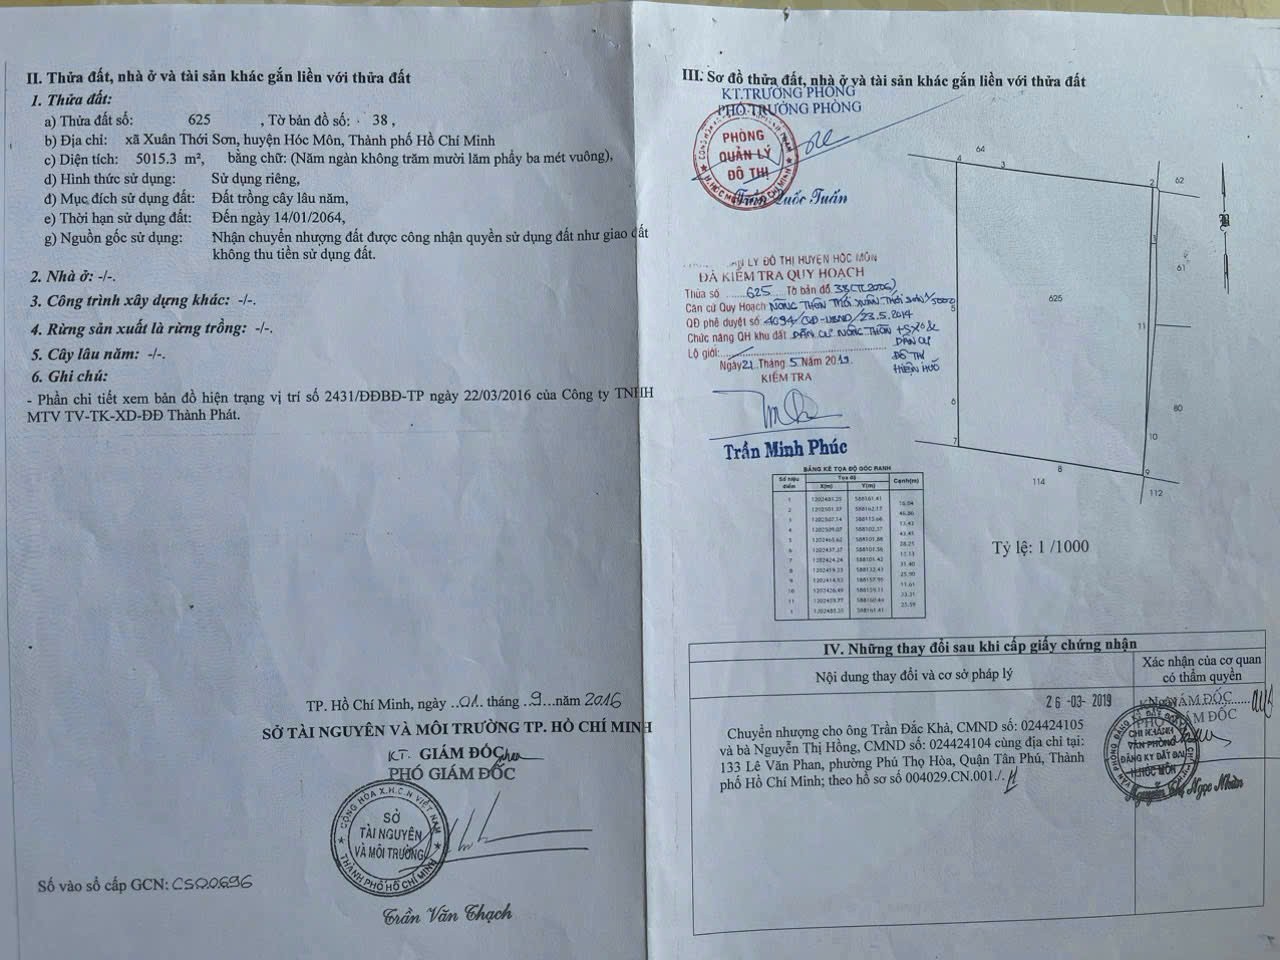 II. Thửa đất, nhà ở và tài sản khác gắn liền với thửa đất
1. Thửa đất:
a) Thửa đất số: 625 , Tờ bản đồ số: 38 ,
b) Địa chỉ: xã Xuân Thới Sơn, huyện Hóc Môn, Thành phố Hồ Chí Minh
c) Diện tích: 5015.3 m², bằng chữ: (Năm ngàn không trăm mười lăm phẩy ba mét vuông),
d) Hình thức sử dụng: Sử dụng riêng,
đ) Mục đích sử dụng đất: Đất trồng cây lâu năm,
e) Thời hạn sử dụng đất: Đến ngày 14/01/2064,
g) Nguồn gốc sử dụng: Nhận chuyển nhượng đất được công nhận quyền sử dụng đất như giao đất
không thu tiền sử dụng đất.
2. Nhà ở: -/-.
3. Công trình xây dựng khác: -/-.
4. Rừng sản xuất là rừng trồng: -/-.
5. Cây lâu năm: -/-.
6. Ghi chú:
- Phần chi tiết xem bản đồ hiện trạng vị trí số 2431/ĐĐBĐ-TP ngày 22/03/2016 của Công ty TNHH
MTV TV-TK-XD-ĐĐ Thành Phát.
TP. Hồ Chí Minh, ngày ..01. tháng .9...năm 2016
SỞ TÀI NGUYÊN VÀ MÔI TRƯỜNG TP. HỒ CHÍ MINH
KT. GIÁM ĐỐC
PHÓ GIÁM ĐỐC
CỘNG HÒA X.H.C.N VIỆT NAM
SỞ
TÀI NGUYÊN
VÀ MÔI TRƯỜNG
THÀNH PHỐ HỒ CHÍ MINH
Trần Văn Thạch
Số vào sổ cấp GCN: CS00696
III. Sơ đồ thửa đất, nhà ở và tài sản khác gắn liền với thửa đất
KT.TRƯỞNG PHÒNG
PHÓ TRƯỞNG PHÒNG
PHÒNG
QUẢN LÝ
ĐÔ THỊ
Trần Quốc Tuấn
LÝ ĐÔ THỊ HUYỆN HÓC MÔN
ĐÃ KIỂM TRA QUY HOẠCH
Thửa số ......625...... Tờ bản đồ 38(TL2006)
Căn cứ Quy Hoạch NÔNG THÔN MỚI XUÂN THỚI SƠN 1/5000
QĐ phê duyệt số: 4094/QĐ-UBND/23.5.2014
Chức năng QH khu đất DÂN CƯ NÔNG THÔN +
DÂN CƯ
Lộ giới:
ĐÔ THỊ
HIỆN HỮU
Ngày 21 Tháng 5 Năm 2019
KIỂM TRA
Trần Minh Phúc
64
4
3
2
62
1
61
5
625
11
80
6
10
7
8
9
114
112
BẢNG KÊ TỌA ĐỘ GÓC RANH
Số hiệu
điểm
Tọa độ
X(m) Y(m)
Cạnh(m)
1
2
3
4
5
6
7
8
9
10
11
1
Tỷ lệ: 1 /1000
IV. Những thay đổi sau khi cấp giấy chứng nhận
Nội dung thay đổi và cơ sở pháp lý
Xác nhận của cơ quan
có thẩm quyền
26-03-2019
Chuyển nhượng cho ông Trần Đắc Khả, CMND số: 024424105
và bà Nguyễn Thị Hồng, CMND số: 024424104 cùng địa chỉ tại:
133 Lê Văn Phan, phường Phú Thọ Hòa, Quận Tân Phú, Thành
phố Hồ Chí Minh; theo hồ sơ số 004029.CN.001./.
GIÁM ĐỐC
PHÓ GIÁM ĐỐC
CHI NHÁNH
VĂN PHÒNG
ĐĂNG KÝ ĐẤT ĐAI
H.HÓC MÔN
Nguyễn Thị Ngọc Nhàn